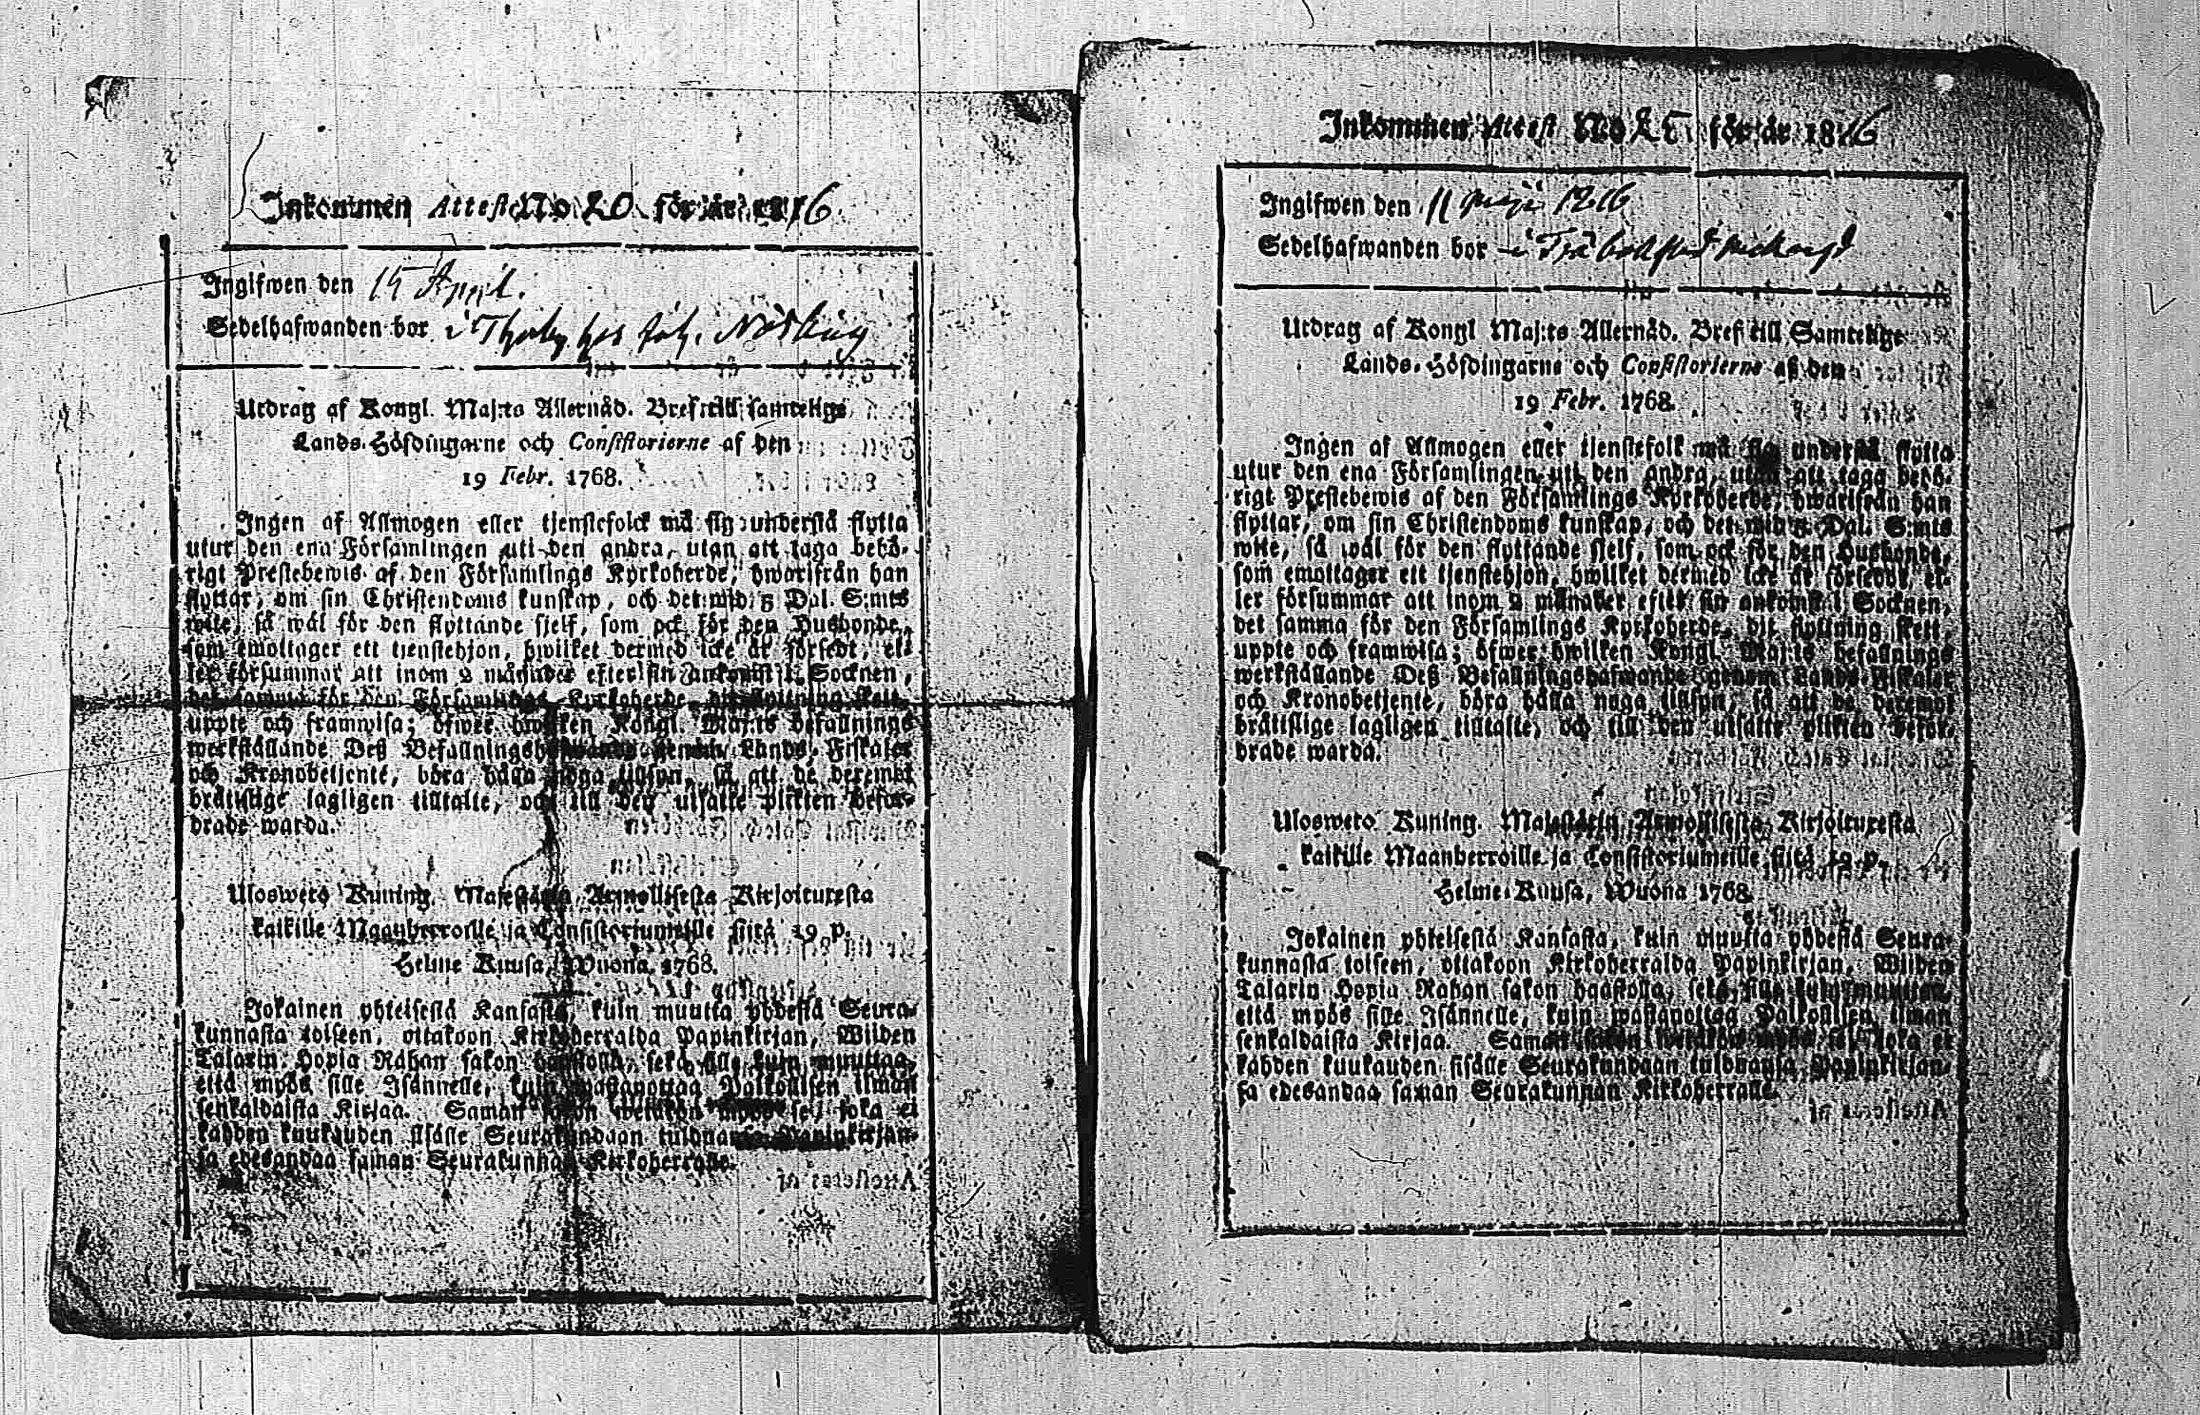 Inkommen Attest No 20 för år 1816
Ingifwen den 15 April.
Sedelhafwanden bor i Thjaby hos
Utdrag af Kongl. Maj:ts Allernåd. Bref till samtelige
Lands-Höfdingarne och Consistorierne af den
19 Febr. 1768.
Ingen af Allmogen eller tjenstefolck må sig understå flytta
utur den ena Församlingen uti den andra, utan att taga behö-
rigt Prestebewis af den Församlings Kyrkoherde, hwarifrån han
flyttar, om sin Christendoms kunskap, och det wid 5 Dal. S:mts
wite, så wäl för den flyttande sjelf, som ock för den Husbonde,
som emottager ett tjenstehjon, hwilket dermed icke är försedt, el-
ler försummar att inom 2 månader efter sin ankomst i Socknen,
det samma för den Församlings Kyrkoherde, dit flyttning skett,
uppte och framwisa; öfwer hwilken Kongl. Maj:ts befallnings
werkställande Deß Befallningshafwande genom Lands-Fiskaler
och Kronobetjente, böra hålla noga tillsyn, så att de deremot
brättslige lagligen tilltalte, och till den utsatte plikten beför-
drade warda.
Uloswető Kuning. Majestätin Armollisesta Kirjoituxesta
kaikille Maanherroille ja Consistoriumeille siitä 19 p.
Helme Kuusa, Wuona 1768.
Jokainen yhteisestä Kansasta, kuin muutta yhdestä Seura-
kunnasta toiseen, ottakoon Kirkoherralda Papinkirjan, Wiiden
Talarin Hopia Rahan sakon haastolla, sekä sille kuin muuttaa,
että myös sille Isännelle, kuin wastanottaa Palkollisen ilman
senkaldaista Kirjaa. Saman sakon wetäkön myös se, joka ei
kahden kuukauden sisälle Seurakundaan tulduansa Papinkirjan-
sa edesandaa saman Seurakunnan Kirkoherralle.
Inkommen Attest No 25 för år 1816
Ingifwen den 11 Maji 1816
Sedelhafwanden bor i
Utdrag af Kongl Maj:ts Allernåd. Bref till Samtelige
Lands-Höfdingarne och Consistorierne af den
19 Febr. 1768.
Ingen af Allmogen eller tjenstefolk må sig understå flytta
utur den ena Församlingen uti den andra, utan att taga behö-
rigt Prestebewis af den Församlings Kyrkoherde, hwarifrån han
flyttar, om sin Christendoms kunskap, och det wid 5 Dal. S:mts
wite, så wäl för den flyttande sjelf, som ock för den Husbonde,
som emottager ett tjenstehjon, hwilket dermed icke är försedt, el-
ler försummar att inom 2 månader efter sin ankomst i Socknen,
det samma för den Församlings Kyrkoherde, dit flyttning skett,
uppte och framwisa; öfwer hwilken Kongl. Maj:ts befallnings
werkställande Deß Befallningshafwande genom Lands-Fiskaler
och Kronobetjente, böra hålla noga tillsyn, så att de deremot
brättslige lagligen tilltalte, och till den utsatte plikten beför-
drade warda.
Uloswető Kuning. Majestätin Armollisesta Kirjoituxesta
kaikille Maanherroille ja Consistoriumeille siitä 19 p.
Helme-Kuusa, Wuona 1768
Jokainen yhteisestä Kansasta, kuin muutta yhdestä Seura-
kunnasta toiseen, ottakoon Kirkoherralda Papinkirjan, Wiiden
Talarin Hopia Rahan sakon haastolla, sekä sille kuin muuttaa,
että myös sille Isännelle, kuin wastanottaa Palkollisen ilman
senkaldaista Kirjaa. Saman sakon wetäkön myös se, joka ei
kahden kuukauden sisälle Seurakundaan tulduansa Papinkirjan-
sa edesandaa saman Seurakunnan Kirkoherralle.